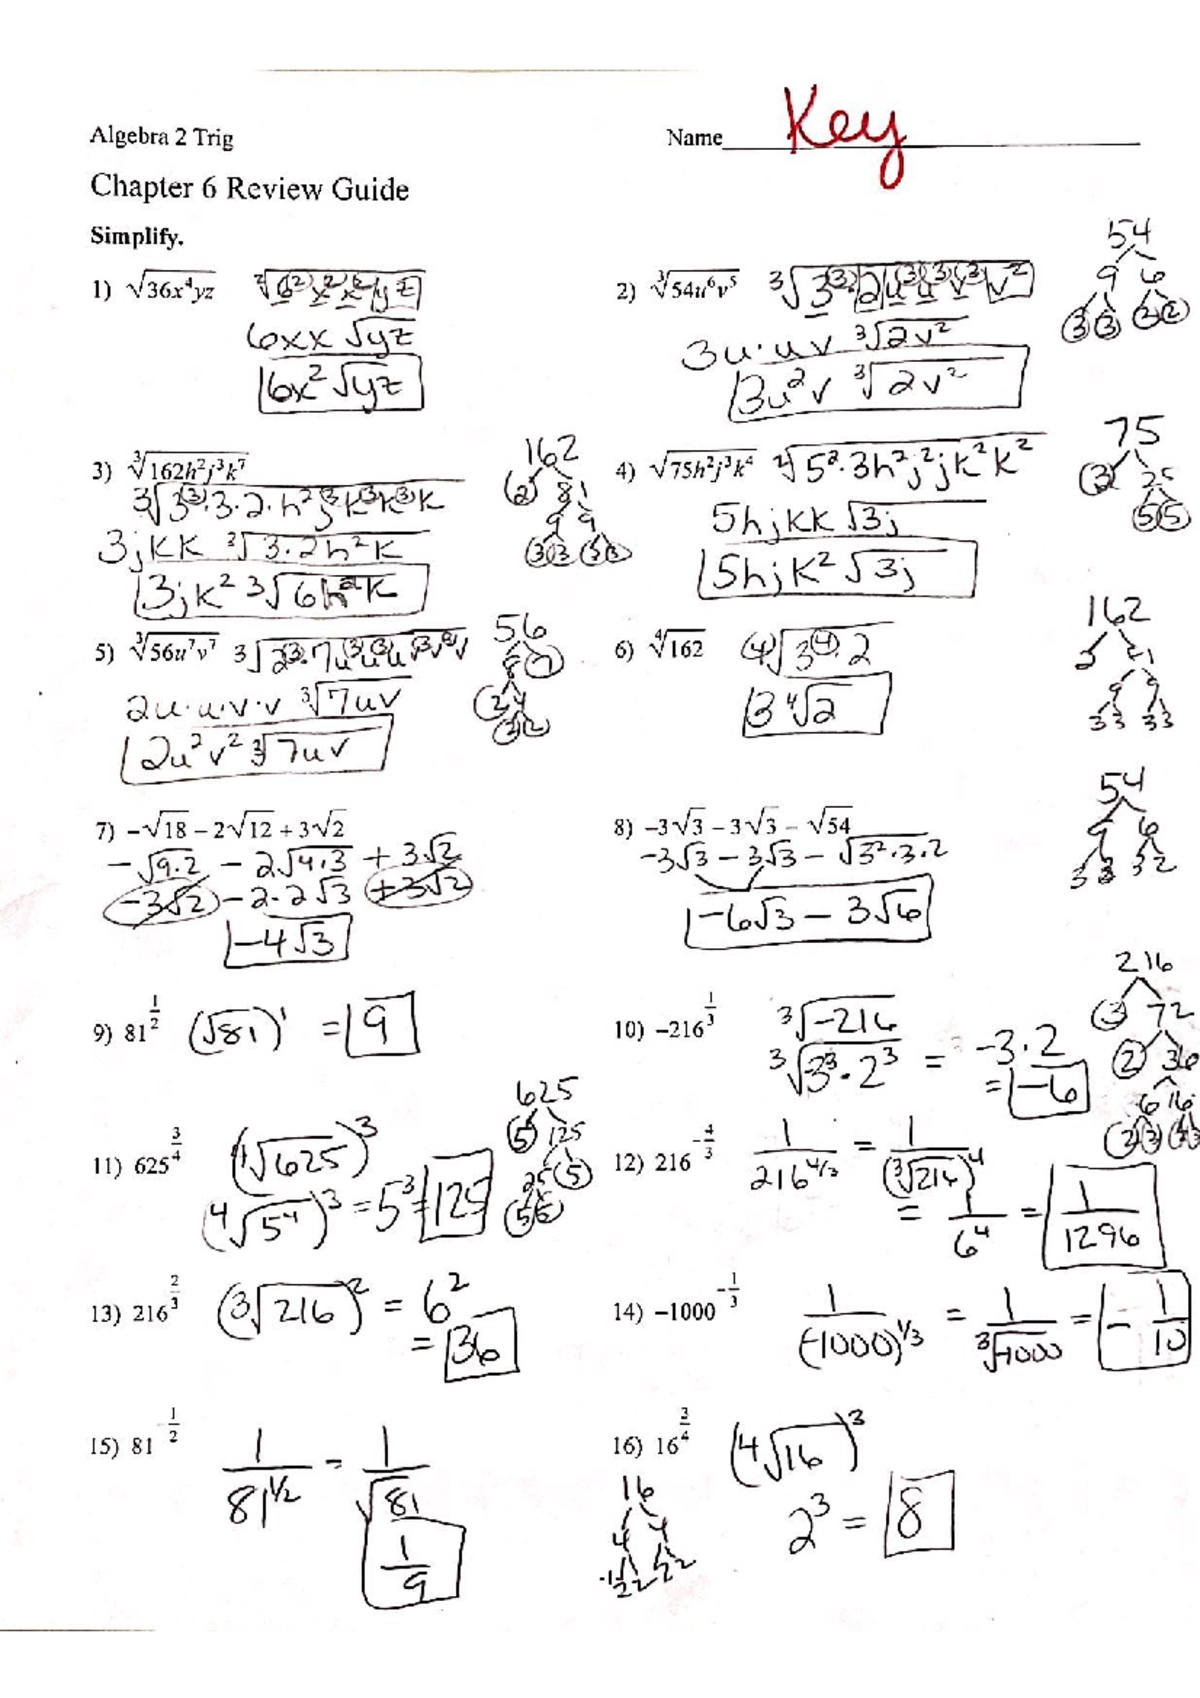 Algebra 2 Trig Name Key
Chapter 6 Review Guide
Simplify.
1) √36x⁴yz ²√6² x² x² yz
6xx √yz
6x² √yz
2) ³√54u⁶v⁵ ³√3³·2u³u³v³v²
3u·uv ³√2v²
3u²v ³√2v²
54
9 6
3 3 2
3) ³√162h²j³k⁷
³√3³·3·2·h²j³k³k³k
3jkk ³√3·2h²k
3jk² ³√6h²k
162
2 81
9 9
3 3 3 3
4) √75h²j³k⁴ ²√5²·3h²j²jk²k²
5hjkk √3j
5hjk² √3j
75
3 25
5 5
5) ³√56u⁷v⁷ ³√2³·7u³u³uv³v³v
2u·u·v·v ³√7uv
2u²v² ³√7uv
56
7
2 4
2 2
6) ⁴√162 ⁴√3⁴·2
3 ⁴√2
162
9 9
3 3 3 3
7) −√18 − 2√12 + 3√2
−√9·2 − 2√4·3 + 3√2
−3√2 − 2·2√3 + 3√2
−4√3
8) −3√3 − 3√3 − √54
−3√3 − 3√3 − √3²·3·2
−6√3 − 3√6
54
9 6
3 3 3 2
9) 81^(1/2) (√81)¹ = 9
10) −216^(1/3) ³√−216
³√3³·2³ = −3·2
= −6
216
3 72
2 36
6
11) 625^(3/4) (⁴√625)³
(⁴√5⁴)³ = 5³ = 125
625
5 125
25 5
5 5
12) 216^(−4/3) 1/216^(4/3) = 1/(³√216)⁴
= 1/6⁴ = 1/1296
13) 216^(2/3) (³√216)² = 6²
= 36
14) −1000^(−1/3) 1/(−1000)^(1/3) = 1/³√−1000 = −1/10
15) 81^(−1/2) 1/81^(1/2) = 1/√81
1/9
16) 16^(3/4) (⁴√16)³
2³ = 8
16
4 4
2 2 2 2